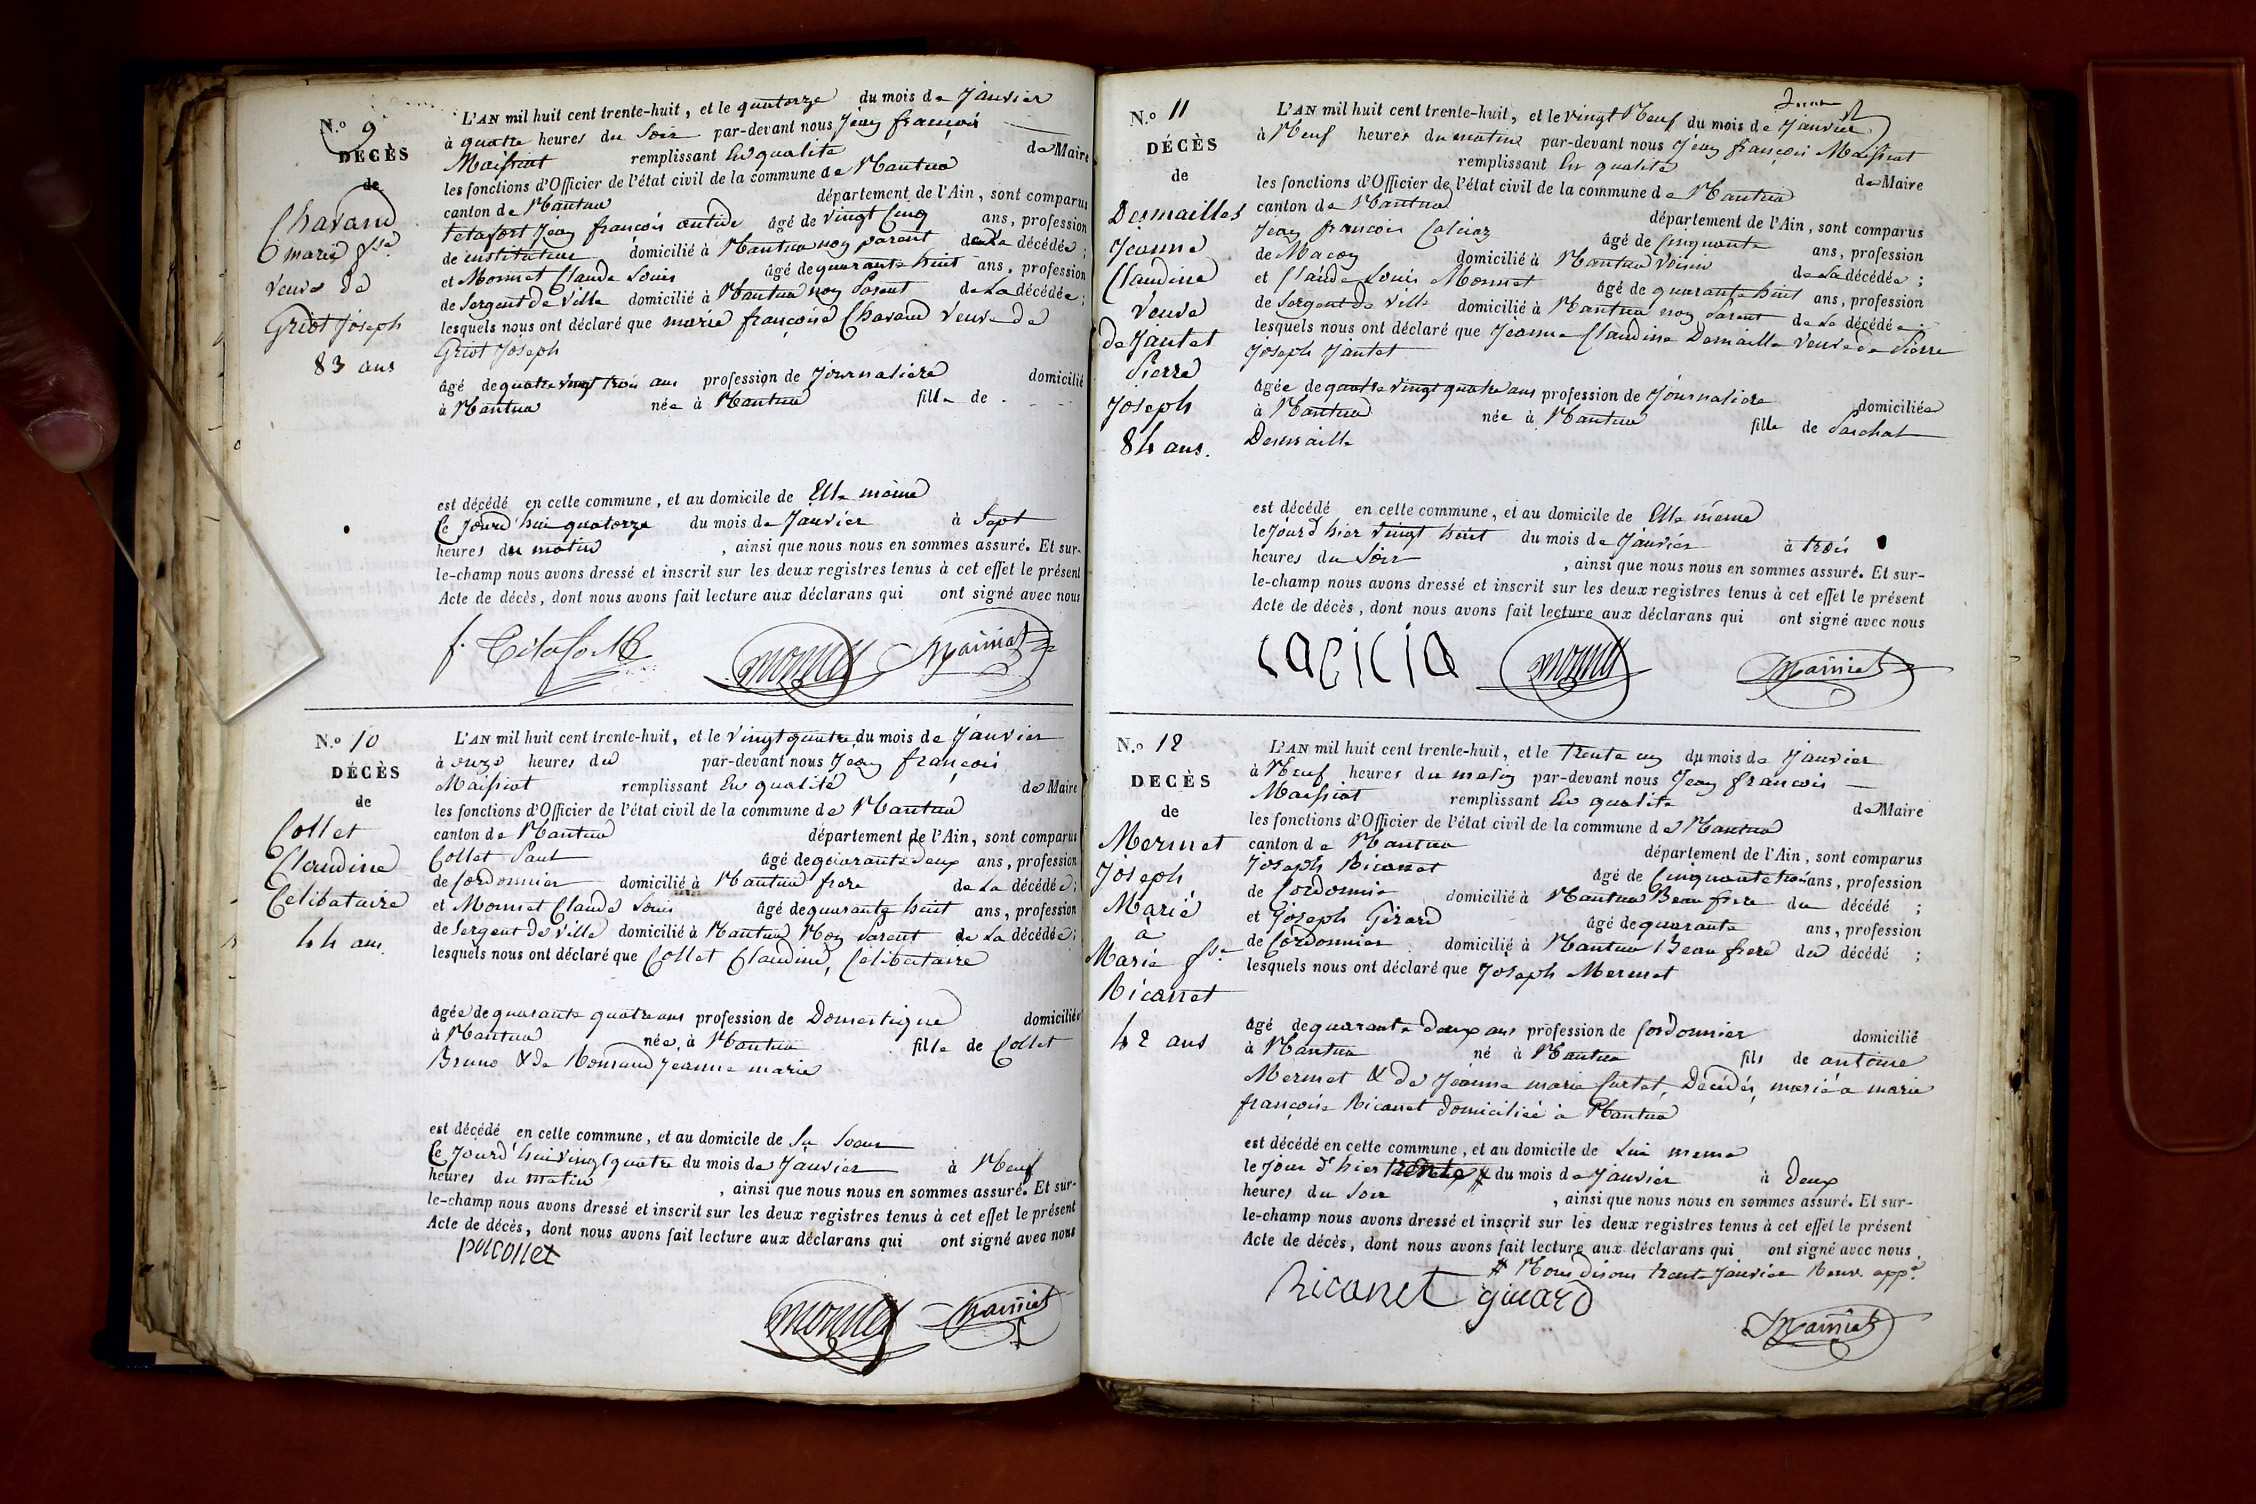 N.o 9
DÉCÈS
de
Chavand
marie fse
veuve de
Griot Joseph
83 ans
L'AN mil huit cent trente-huit, et le quatorze du mois de Janvier
à quatre heures du Soir par-devant nous Jean françois
Maissiat remplissant En qualité de Maire
les fonctions d'Officier de l'état civil de la commune de Nantua
canton de Nantua département de l'Ain, sont comparus
tetafort Jean françois antide âgé de vingt Cinq ans, profession
de instituteur domicilié à Nantua non parent de La décédée;
et Monnet Claude Louis âgé de quarante huit ans, profession
de Sergent de Ville domicilié à Nantua non Parent de La décédée;
lesquels nous ont déclaré que marie françoise Chavand Veuve de
Griot Joseph
âgé de quatre vingt trois ans profession de Journalière domicilié
à Nantua née à Nantua fille de
est décédé en cette commune, et au domicile de Elle même
Ce Jourd'hui quatorze du mois de Janvier à Sept
heures du matin, ainsi que nous nous en sommes assuré. Et sur-
le-champ nous avons dressé et inscrit sur les deux registres tenus à cet effet le présent
Acte de décès, dont nous avons fait lecture aux déclarans qui ont signé avec nous
monnet Maissiat
N.o 10
DÉCÈS
de
Collet
Claudine
Celibataire
44 ans.
L'AN mil huit cent trente-huit, et le vingt quatre du mois de Janvier
à onze heures du par-devant nous Jean françois
Maissiat remplissant En qualité de Maire
les fonctions d'Officier de l'état civil de la commune de Nantua
canton de Nantua département de l'Ain, sont comparus
Collet Paul âgé de quarante deux ans, profession
de Cordonnier domicilié à Nantua frere de La décédée;
et Monnet Claude Louis âgé de quarante huit ans, profession
de Sergent de Ville domicilié à Nantua Non parent de La décédée;
lesquels nous ont déclaré que Collet Claudine, Celibataire
âgée de quarante quatre ans profession de Domestique domiciliée
à Nantua née à Nantua fille de Collet
Bruno & de Jeanne marie
est décédé en cette commune, et au domicile de Sa Soeur
Ce Jourd'hui vingt quatre du mois de Janvier à Neuf
heures du matin, ainsi que nous nous en sommes assuré. Et sur-
le-champ nous avons dressé et inscrit sur les deux registres tenus à cet effet le présent
Acte de décès, dont nous avons fait lecture aux déclarans qui ont signé avec nous
pulcollet
monnet Maissiat
N.o 11
DÉCÈS
de
Desmailles
Jeanne
Claudine
Veuve
de Jantet
Pierre
Joseph
84 ans.
L'AN mil huit cent trente-huit, et le vingt Neuf du mois de Janvier
à Neuf heures du matin par-devant nous Jean françois Maissiat
remplissant En qualité de Maire
les fonctions d'Officier de l'état civil de la commune de Nantua
canton de Nantua département de l'Ain, sont comparus
Jean françois âgé de Cinquante ans, profession
de Maçon domicilié à Nantua Voisin de La décédée;
et Claude Louis Monnet âgé de quarante huit ans, profession
de Sergent de Ville domicilié à Nantua non Parent de La décédée;
lesquels nous ont déclaré que Jeanne Claudine Demaille Veuve de Pierre
Joseph Jantet
âgée de quatre vingt quatre ans profession de Journalière domiciliée
à Nantua née à Nantua fille de Paschal
Demaille
est décédé en cette commune, et au domicile de Elle même
le Jourd hier vingt huit du mois de Janvier à trois
heures du Soir, ainsi que nous nous en sommes assuré. Et sur-
le-champ nous avons dressé et inscrit sur les deux registres tenus à cet effet le présent
Acte de décès, dont nous avons fait lecture aux déclarans qui ont signé avec nous
monnet Maissiat
N.o 12
DECÈS
de
Mermet
Joseph
Marié
a
Marie fse
Ricarret
42 ans
L'AN mil huit cent trente-huit, et le trente un du mois de Janvier
à Neuf heures du matin par-devant nous Jean françois
Maissiat remplissant En qualité de Maire
les fonctions d'Officier de l'état civil de la commune de Nantua
canton de Nantua département de l'Ain, sont comparus
Joseph Ricarret âgé de Cinquante trois ans, profession
de Cordonnier domicilié à Nantua Beau frere du décédé;
et Joseph Girard âgé de quarante ans, profession
de Cordonnier domicilié à Nantua Beau frere du décédé;
lesquels nous ont déclaré que Joseph Mermet
âgé de quarante deux ans profession de Cordonnier domicilié
à Nantua né à Nantua fils de antoine
Mermet & de Jeanne marie Curtet, Décédés, marié a marie
françoise Ricarret domiciliée à Nantua
est décédé en cette commune, et au domicile de Lui meme
le Jour d'hier trente # du mois de Janvier à Deux
heures du Soir, ainsi que nous nous en sommes assuré. Et sur-
le-champ nous avons dressé et inscrit sur les deux registres tenus à cet effet le présent
Acte de décès, dont nous avons fait lecture aux déclarans qui ont signé avec nous.
# Nous disons trente Janvier
Ricaret girard
Maissiat